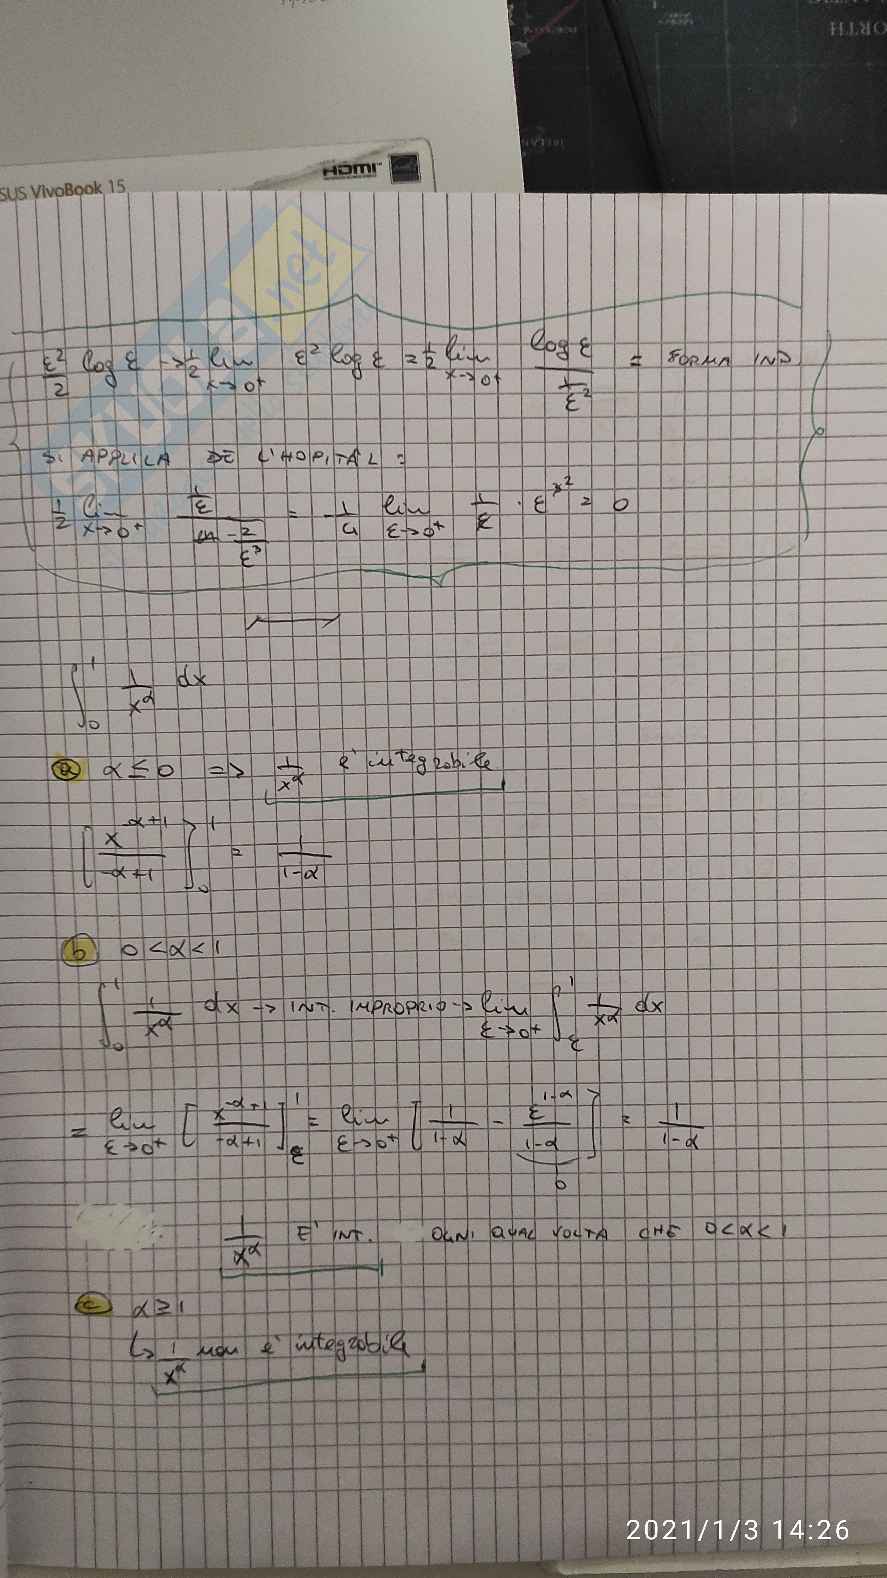 HTЯO
HDMI
SUS VivoBook 15
SKUOLA.net
ε²/2 log ε → 1/2 lim x→0⁺ ε² log ε = 1/2 lim x→0⁺ log ε / (1/ε²) = FORMA IND
SI APPLICA DE L'HOPITAL :
1/2 lim x→0⁺ (1/ε) / (-2/ε³) = -1/4 lim ε→0⁺ 1/ε · ε³² = 0
∫₀¹ 1/x^α dx
a α ≤ 0 => 1/x^α è integrabile
[x^(-α+1) / (-α+1)]₀¹ = 1/(1-α)
b 0 < α < 1
∫₀¹ 1/x^α dx → INT. IMPROPRIO → lim ε→0⁺ ∫_ε¹ 1/x^α dx
= lim ε→0⁺ [x^(-α+1) / (-α+1)]_ε¹ = lim ε→0⁺ [1/(1-α) - ε^(1-α)/(1-α)] = 1/(1-α)
0
1/x^α E' INT. OGNI QUAL VOLTA CHE 0<α<1
c α ≥ 1
↳ 1/x^α non è integrabile
2021/1/3 14:26